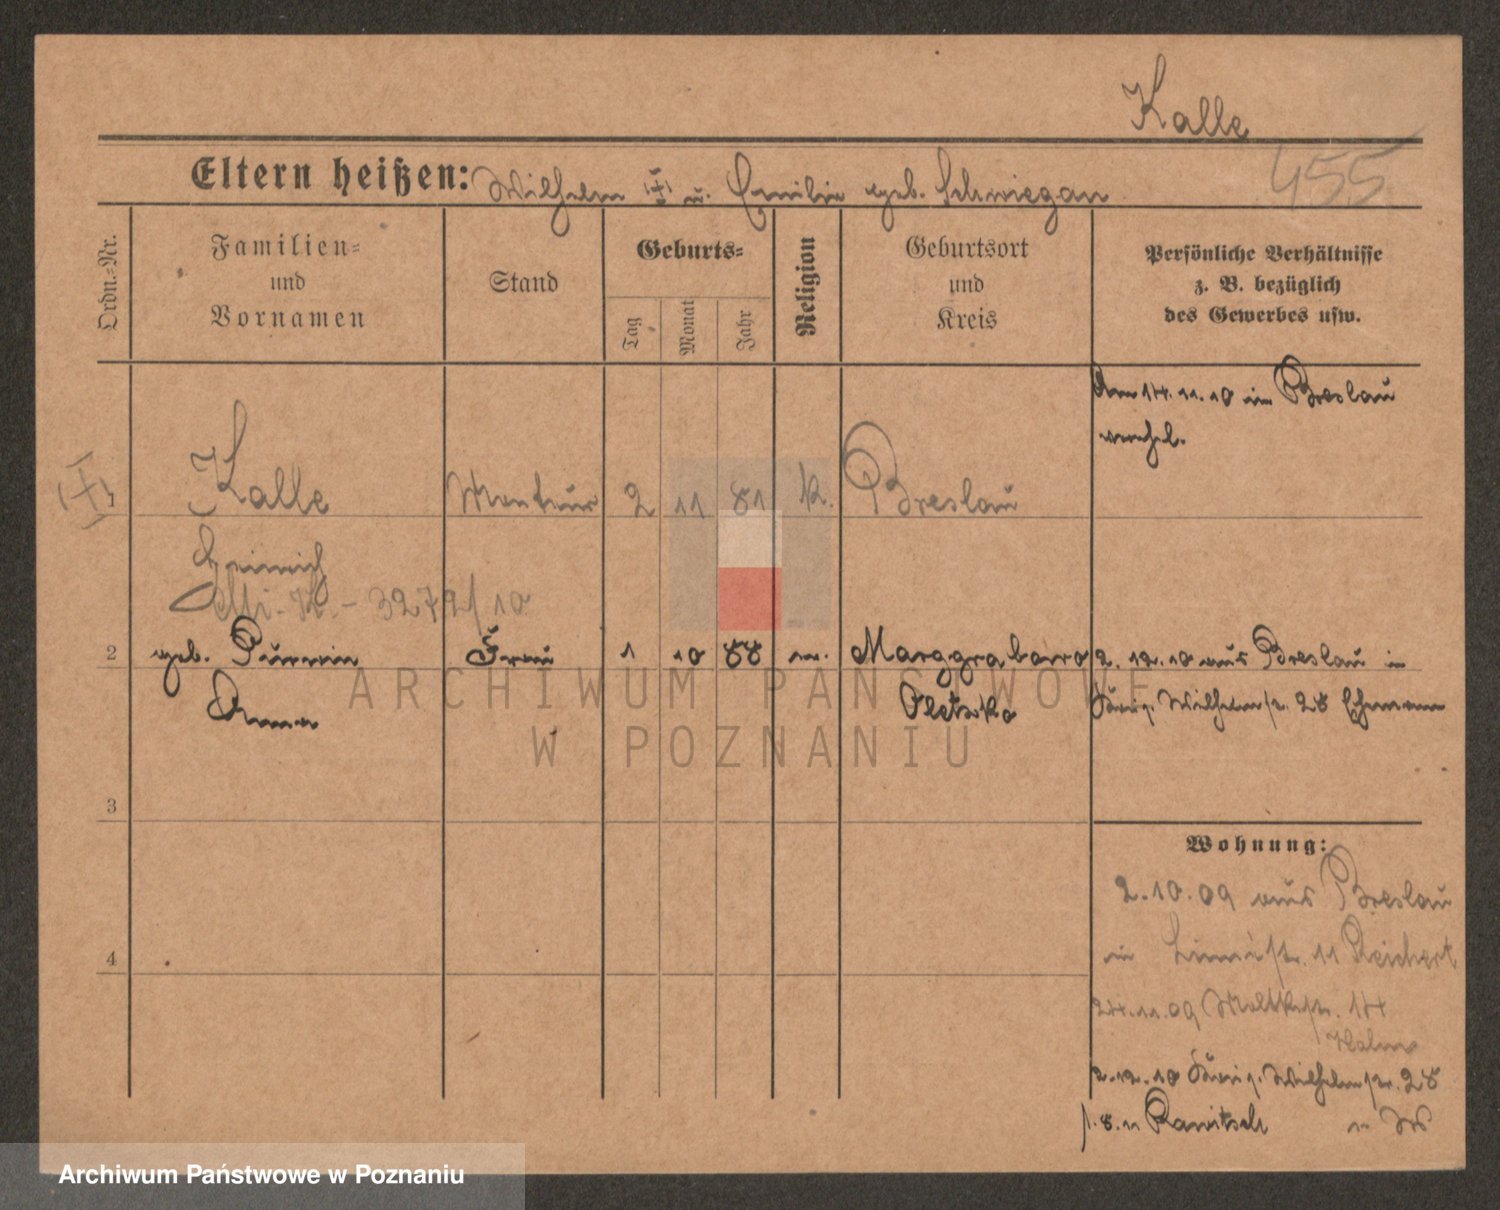 Kalle
455
Eltern heißen: Wilhelm u. Emilie geb. Schwiegan
Ordn.=Nr.
Familien=
und
Vornamen
Stand
Geburts=
Tag
Monat
Jahr
Religion
Geburtsort
und
Kreis
Persönliche Verhältnisse
z. B. bezüglich
des Gewerbes usw.
Am 14.11.10 in Breslau
verehel.
Kalle Monteur 2 11 81 k. Breslau
Heinrich
3279/10
2 geb. Frau 1 10 88 Marggrabowo 2.12.10 aus Breslau in
Anna Oletzko Wilhelmstr. 28
3
Wohnung:
2.10.09 aus Breslau
in 11 Reichert
4
24.11.09 Moltkestr. 14
2.12.10 Wilhelmstr. 28
Rawitsch
ARCHIWUM PAŃSTWOWE
W POZNANIU
Archiwum Państwowe w Poznaniu